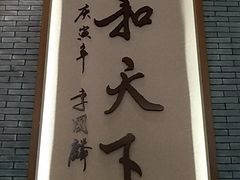 和天下
庚寅年 李国麟